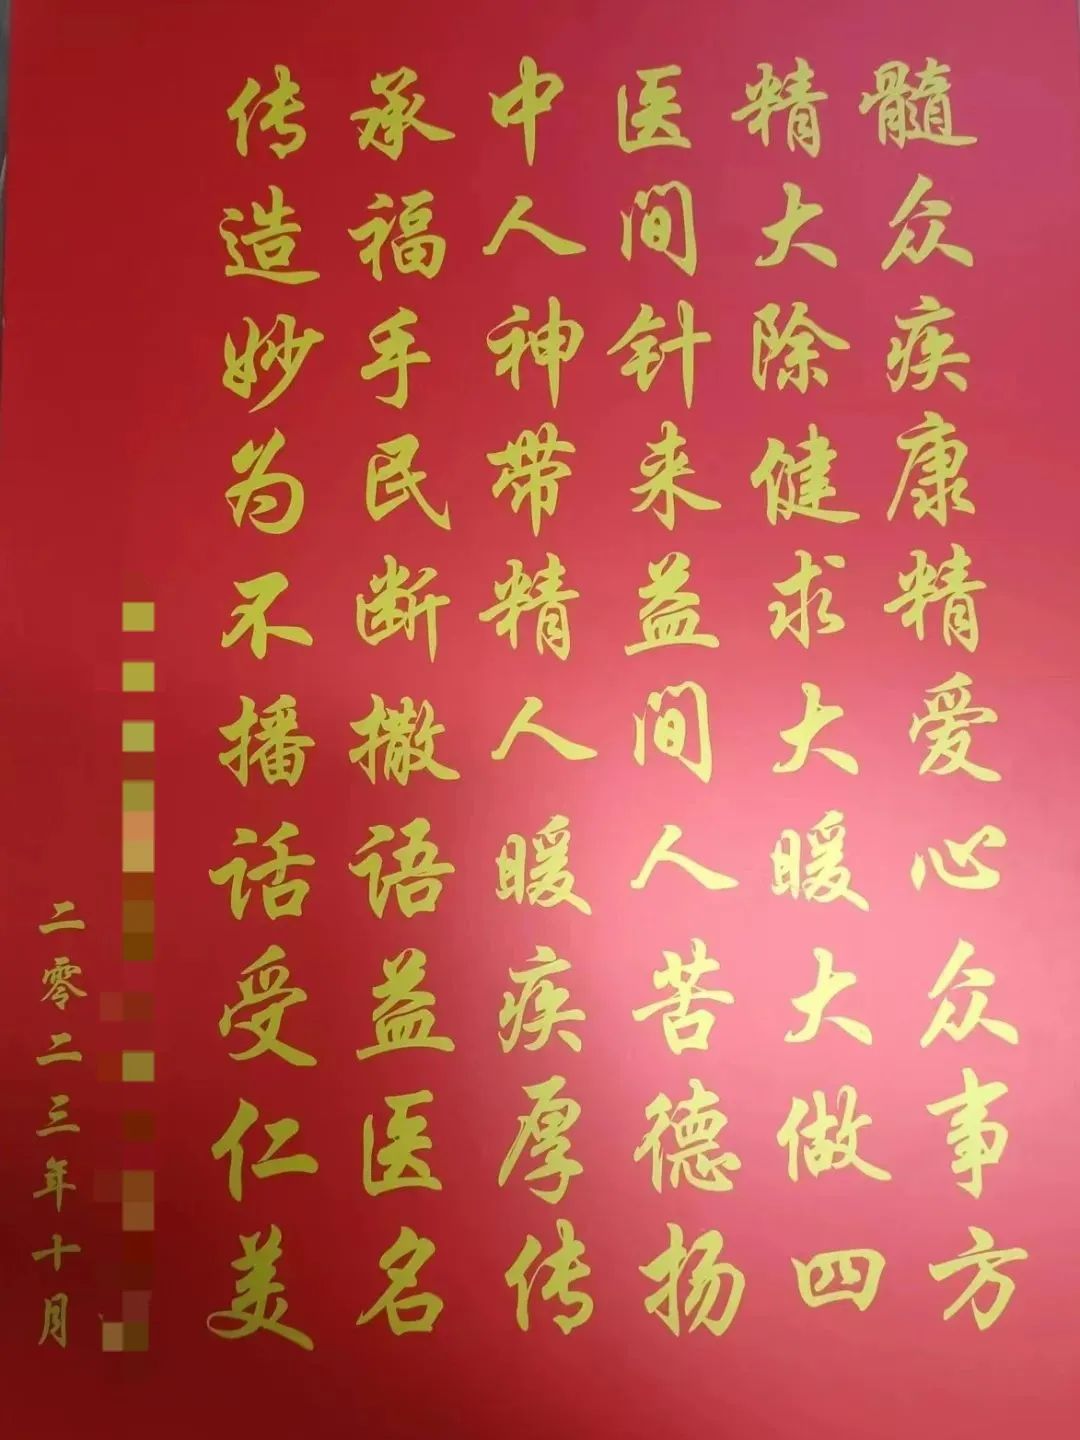 传承中医精髓
造福人间大众
妙手神针除疾
为民带来健康
不断精益求精
播撒人间大爱
话语暖人暖心
受益疾苦大众
仁医厚德做事
美名传扬四方
二零二三年十月